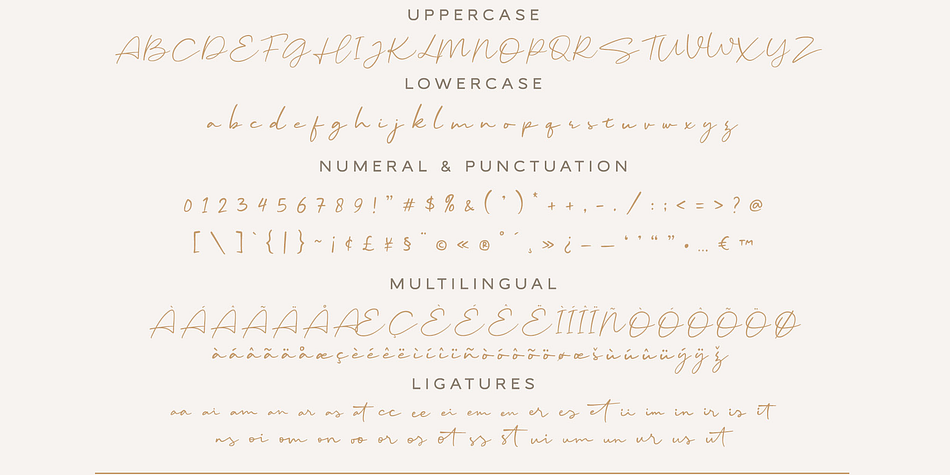 UPPERCASE
ABCDEFGHIJKLMNOPQRSTUVWXYZ
LOWERCASE
a b c d e f g h i j k l m n o p q r s t u v w x y z
NUMERAL & PUNCTUATION
0 1 2 3 4 5 6 7 8 9 ! " # $ % & ( ' ) * + + , - . / : ; < = > ? @
[ \ ] ` { | } ~ ¡ ¢ £ ¥ § ¨ © « ® ° ´ ¸ » ¿ – — ‘ ’ “ ” • … € ™
MULTILINGUAL
ÀÁÂÃÄÅÆÇÈÉÊËÌÍÎÏÑÒÓÔÕÖØ
àáâãäåæçèéêëìíîïñòóôõöøœšùúûüýÿž
LIGATURES
aa ai am an ar as at cc ee ei em en er es et ii im in ir is it
ns oi om on oo or os ot ss st ui um un ur us ut